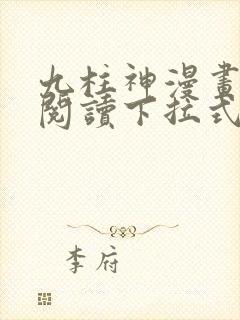 九柱神漫畫
閱讀下拉式
李府